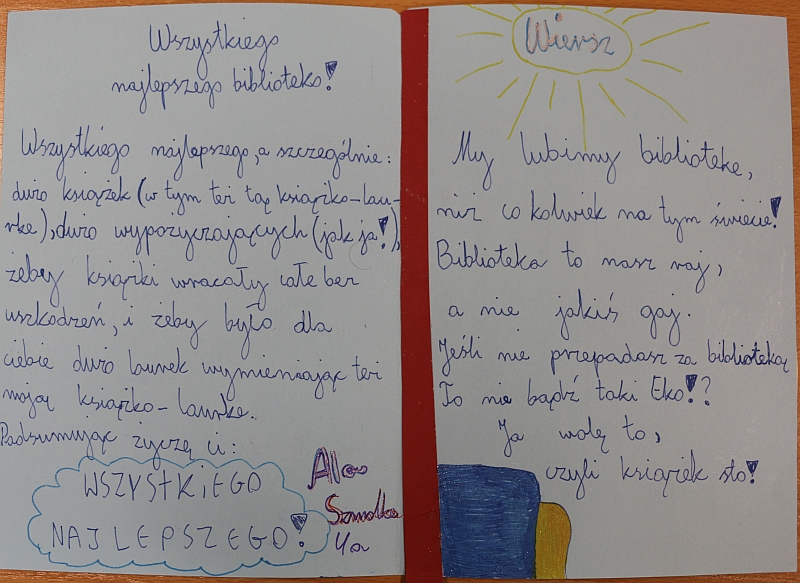 Wszystkiego
najlepszego biblioteko!
Wszystkiego najlepszego, a szczególnie:
dużo książek (w tym też tą książko-lau-
rkę), dużo wypożyczających (jak ja!),
żeby książki wracały całe bez
uszkodzeń, i żeby było dla
ciebie dużo laurek wymieniając też
moją książko-laurkę.
Podsumując życzę ci:
WSZYSTKIEGO
NAJLEPSZEGO!
Ala
Szmolka
4a
Wiersz
My lubimy bibliotekę,
niż co kolwiek na tym świecie!
Biblioteka to nasz raj,
a nie jakiś gaj.
Jeśli nie przepadasz za biblioteką
To nie bądź taki Eko!?
Ja wolę to,
czyli książek sto!